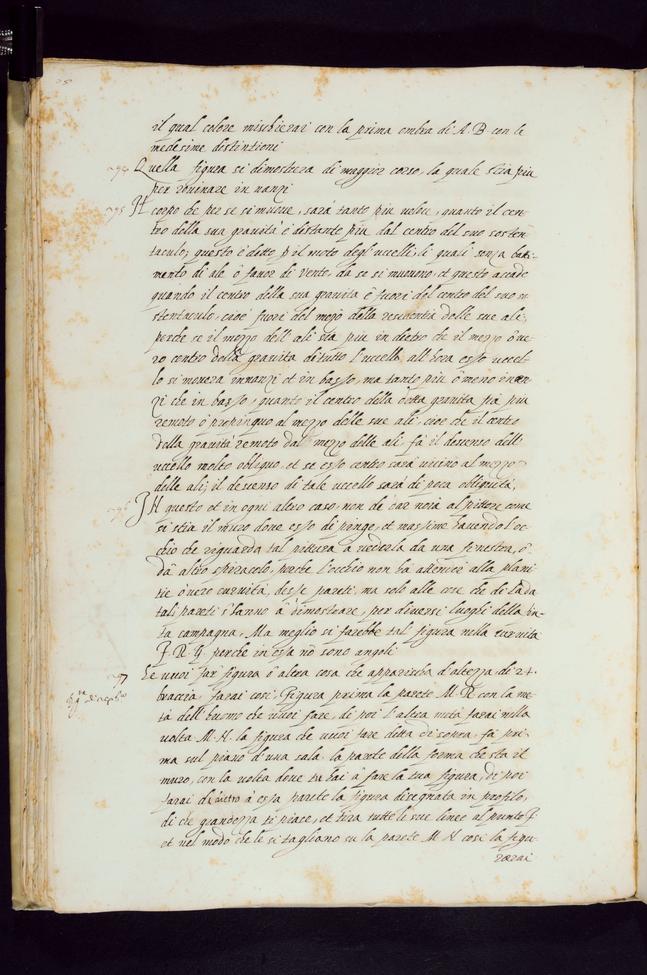 il qual colore mischierai con la prima ombra di A. B. con le
medesime distintioni
294 Quella figura si dimostera di maggior corso, la quale stia piu
per rovinare in nanzi
295 Il corpo che per se si muove, sarà tanto piu veloce, quanto il cen-
tro della sua gravità è distante piu dal centro del suo sosten-
taculo; questo è detto p il moto degl'uccelli, li quali senza bate-
mento di ale ô favor di vento, da se si muovono, et questo accade
quando il centro della sua gravità è fuori del centro del suo so
stentaculo, cioè fuori del mezo della residentia delle sue ali;
perche se il mezzo dell'ali sta piu in dietro che il mezzo ôve-
ro centro della gravità di tutto l'uccello, all'hora esso uccel-
lo si moverà innanzi et in basso, ma tanto piu ô meno inan-
zi che in basso, quanto il centro della detta gravità sia piu
remoto ô propinquo al mezzo delle sue ali, cioè che il centro
della gravità remoto dal mezzo delle ali fà il descenso dell'
uccello molto obliquo, et se esso centro sarà vicino al mezzo
delle ali; il descenso di tale uccello sarà di poca obliquità,
296 In questo et in ogni altro caso, non de dar noia al pittore come
si stia il muro dove esso dipinge, et massime havendo l'oc-
chio che riguarda tal pittura a vederla da una finestra, ô
da altro spiracolo, perche l'occhio non ha attenere alla plani
tie ôvero curvità, desse pareti, ma solo alle cose che di la da
tali pareti s'hanno â dimostrare, per diversi luoghi della fin-
ta campagna, Ma meglio si farebbe tal figura nella curvità
F. R. G. perche in essa nō sono angoli
297 Se vuoi far figura ô altra cosa che apparisca d'altezza di 24.
braccia farai cosi, Figura prima la parete M. R. con la me-
tà dell'huomo che vuoi fare, di poi l'altra metà farai nella
volta M. H. la figura che vuoi fare detta di sopra, fà pri-
ma sul piano d'una sala, la parete della forma che sta il
muro, con la volta dove tu hai â fare la tua figura, di poi
farai dietro à essa parete la figura disegnata in profilo,
di che grandezza ti piace, et tira tutte le sue linee al punto F.
et nel modo che le si tagliano su la parete M. H. cosi la figu-
rarai